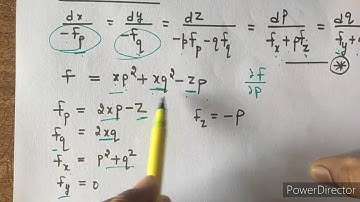 dx/-f_p = dy/-f_q = dz/-pf_p-qf_q = dp/f_x+pf_z = dq/f_y+q
f = xp²+xq²-zp ∂f/∂p
f_p = 2xp-z f_z = -p
f_q = 2xq
f_x = p²+q²
f_y = 0
PowerDirector